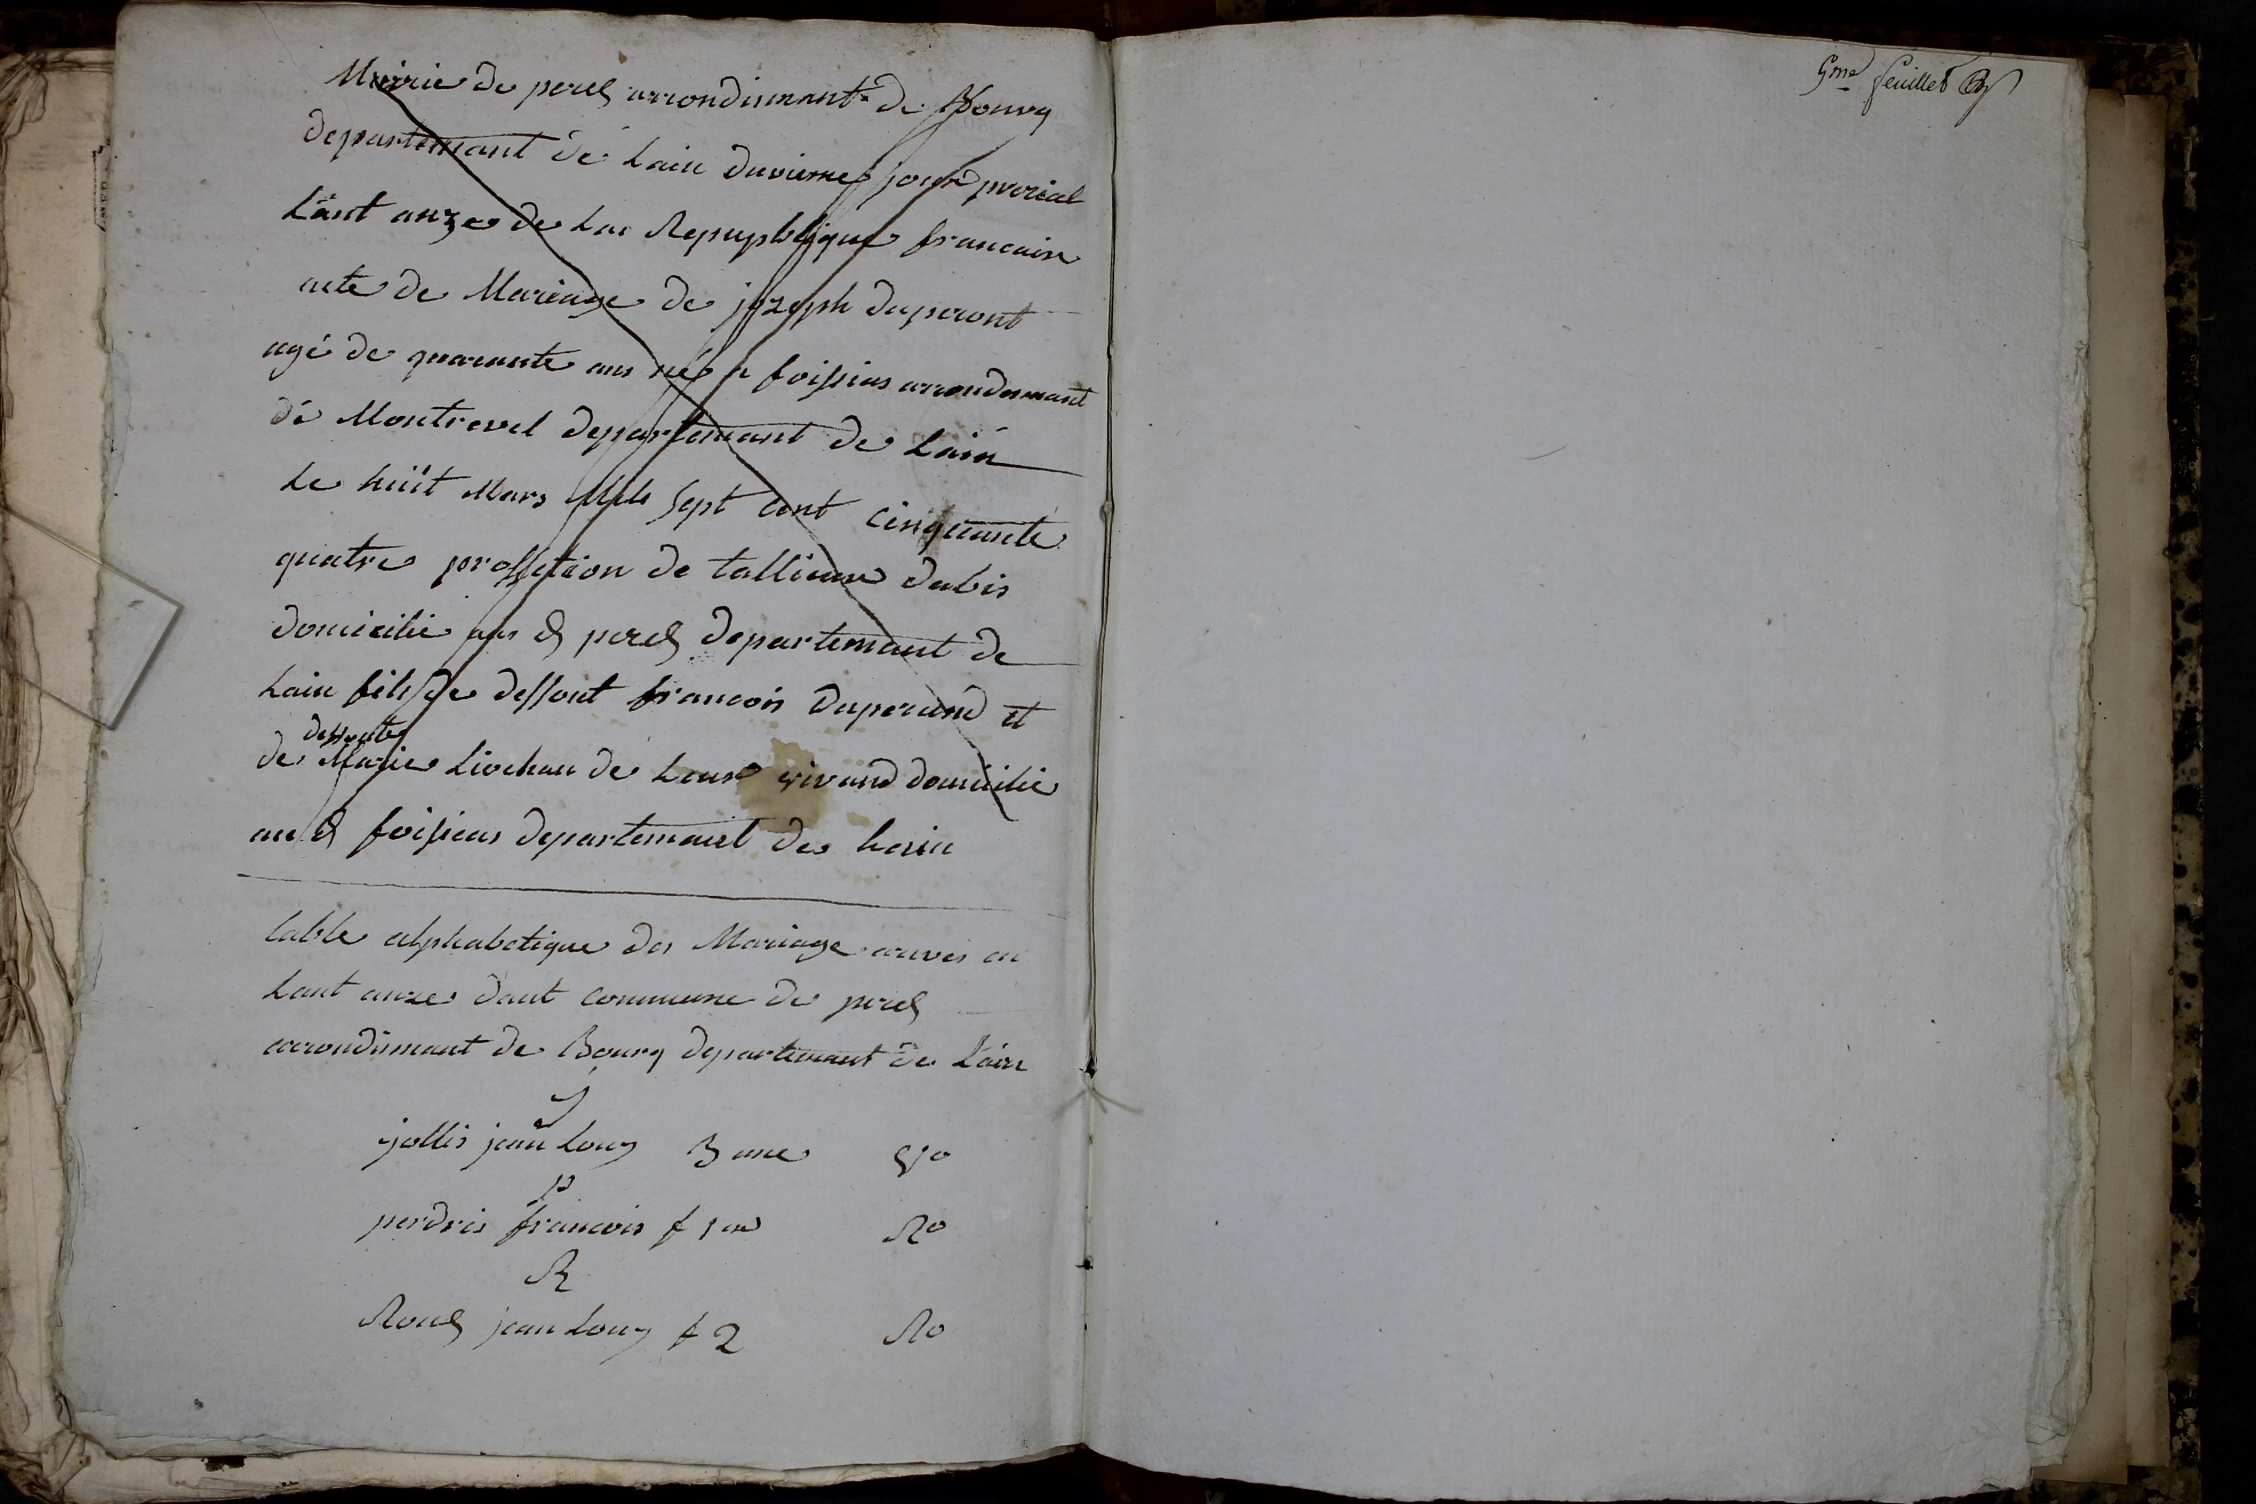 Mairie de perex arrondismant de Bourg
departemant de Lain duvieme jour prerial
Lant onze de La Repupblique francaise
acte de Mariage de jozeph duperont
agé de quarante ans né a foissias arrondismant
de Montrevel departemant de Lain
Le huit Mars Mile sept cent cinquante
quatre proffetion de tallieur dabis
domicilié a perex departemant de
Lain fils de deffont francois duperond et
deffonte
de Marie Liochau de Leur vivand domicilié
a foissias departemant de Lain
table alphabetique des Mariage en
Lant onze dant commune de perex
arrondismant de Bourg departemant de Lain
J
jollis jean Louy
P
perdris francois f 1
Ro
R
Roux jean Louy f 2
Ro
5me feuillet